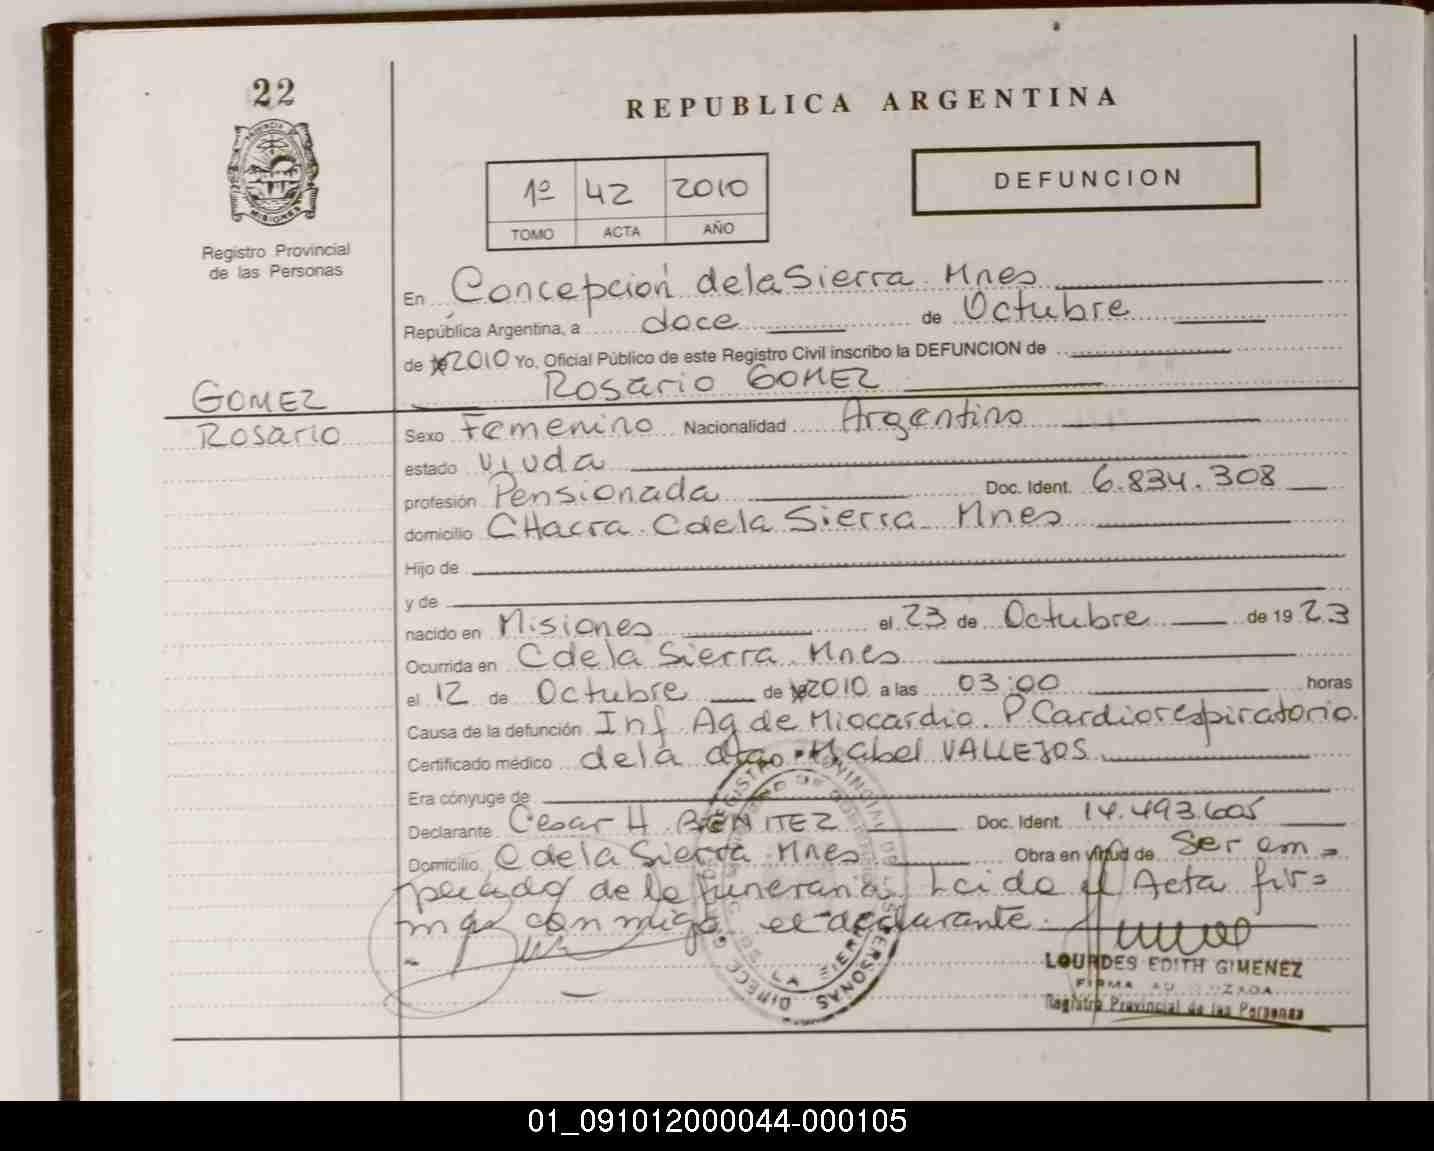 22
REPUBLICA ARGENTINA
PROVINCIA
MISIONES
Registro Provincial
de las Personas
1º 42 2010
TOMO ACTA AÑO
DEFUNCION
En Concepción de la Sierra Mnes
República Argentina, a doce de Octubre
de 2010 Yo, Oficial Público de este Registro Civil inscribo la DEFUNCION de
Rosario GOMEZ
GOMEZ
Rosario
Sexo Femenino Nacionalidad Argentino
estado Viuda
profesión Pensionada Doc. Ident. 6.834.308
domicilio CHacra C de la Sierra Mnes
Hijo de
y de
nacido en Misiones el 23 de Octubre de 1923
Ocurrida en C de la Sierra Mnes
el 12 de Octubre de 2010 a las 03:00 horas
Causa de la defunción Inf Ag de Miocardio P Cardiorespiratorio.
Certificado médico de la Mabel VALLEJOS
Era cónyuge de
Declarante Cesar H BENITEZ Doc. Ident. 14.493.605
Domicilio C de la Sierra Mnes Obra en virtud de Ser em=
pleado de la funeraria. Leida el Acta fir=
ma conmigo el declarante.
LOURDES EDITH GIMENEZ
FIRMA AUTORIZADA
Registro Provincial de las Personas
01_091012000044-000105